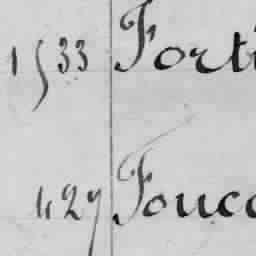 1533 Forti
427 Fouca